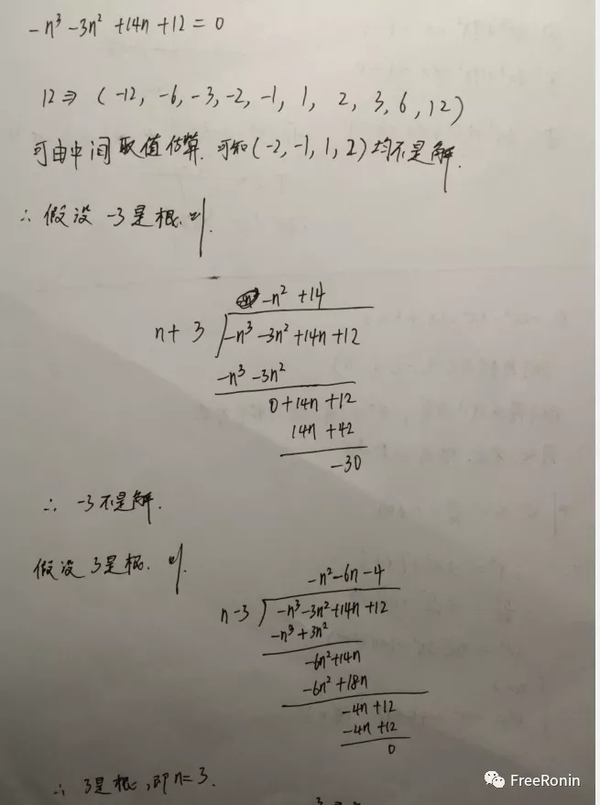 -n³-3n²+14n+12=0
12⇒(-12,-6,-3,-2,-1,1,2,3,6,12)
可由中间取值估算.可知(-2,-1,1,2)均不是解.
∴假设-3是根.则.
-n²+14
n+3 -n³-3n²+14n+12
-n³-3n²
0+14n+12
14n+42
-30
∴-3不是解.
假设3是根.则.
-n²-6n-4
n-3 -n³-3n²+14n+12
-n³+3n²
-6n²+14n
-6n²+18n
-4n+12
-4n+12
0
∴3是根,即n=3.
FreeRonin